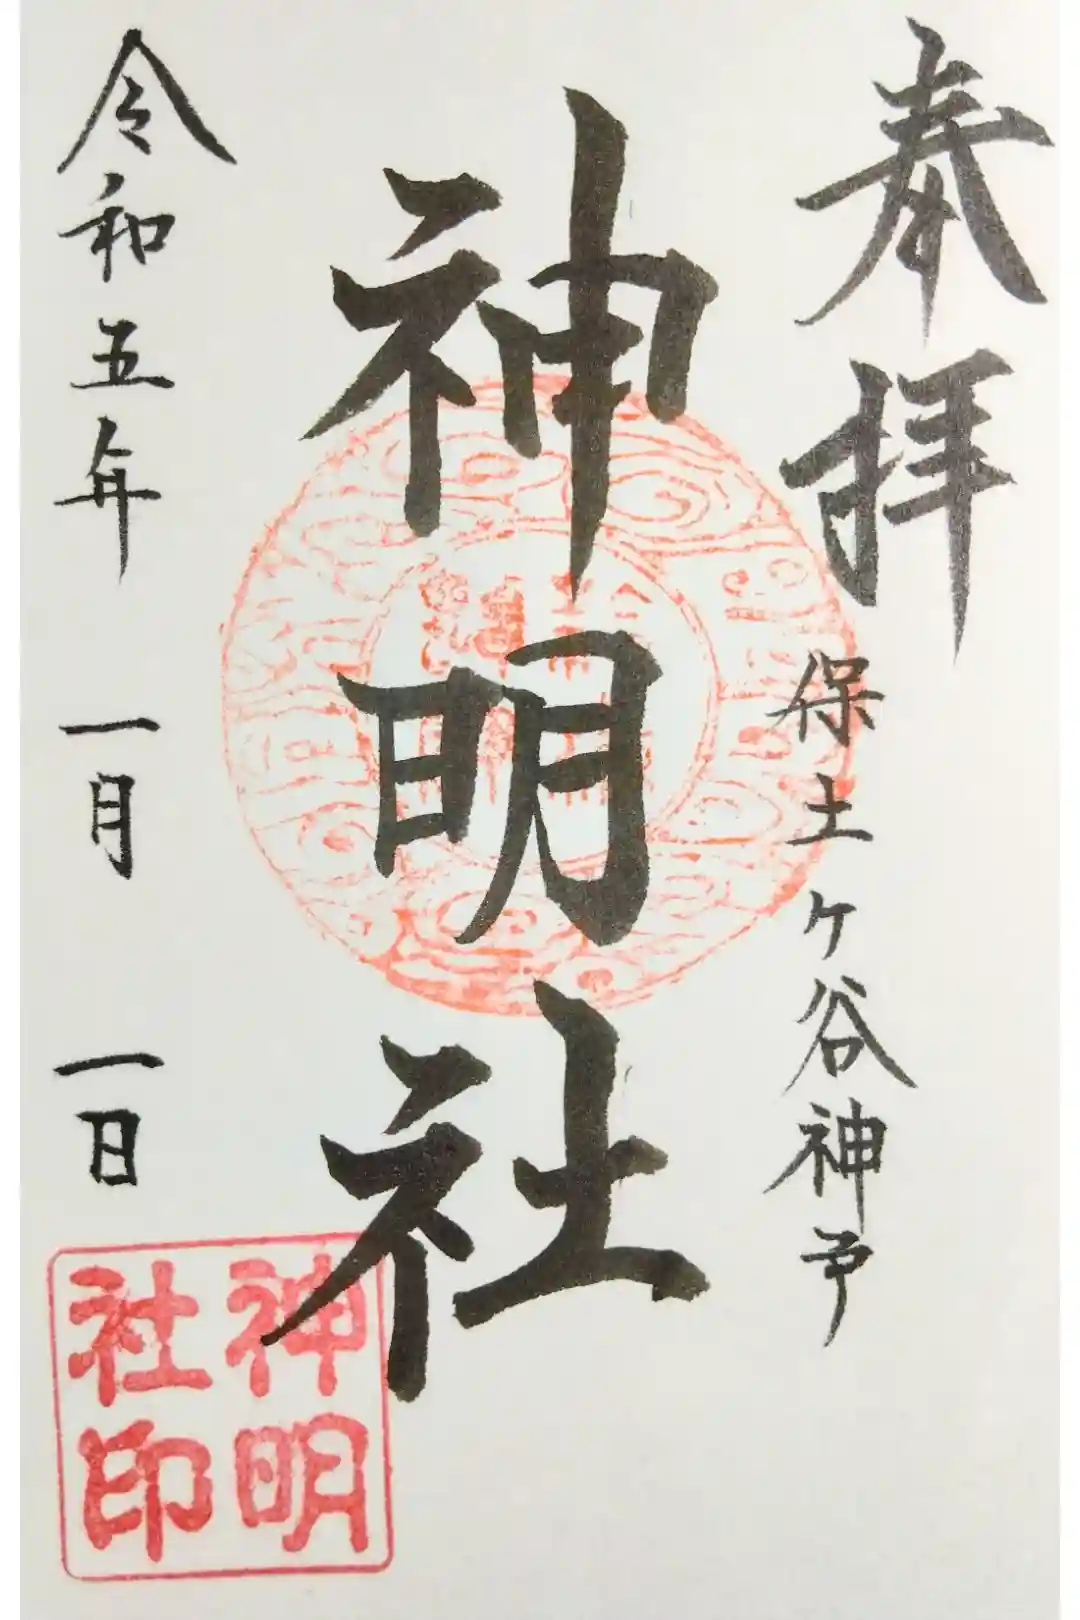 奉拝
保土ケ谷神戸
神明社
令和五年 一月 一日
神明
社印